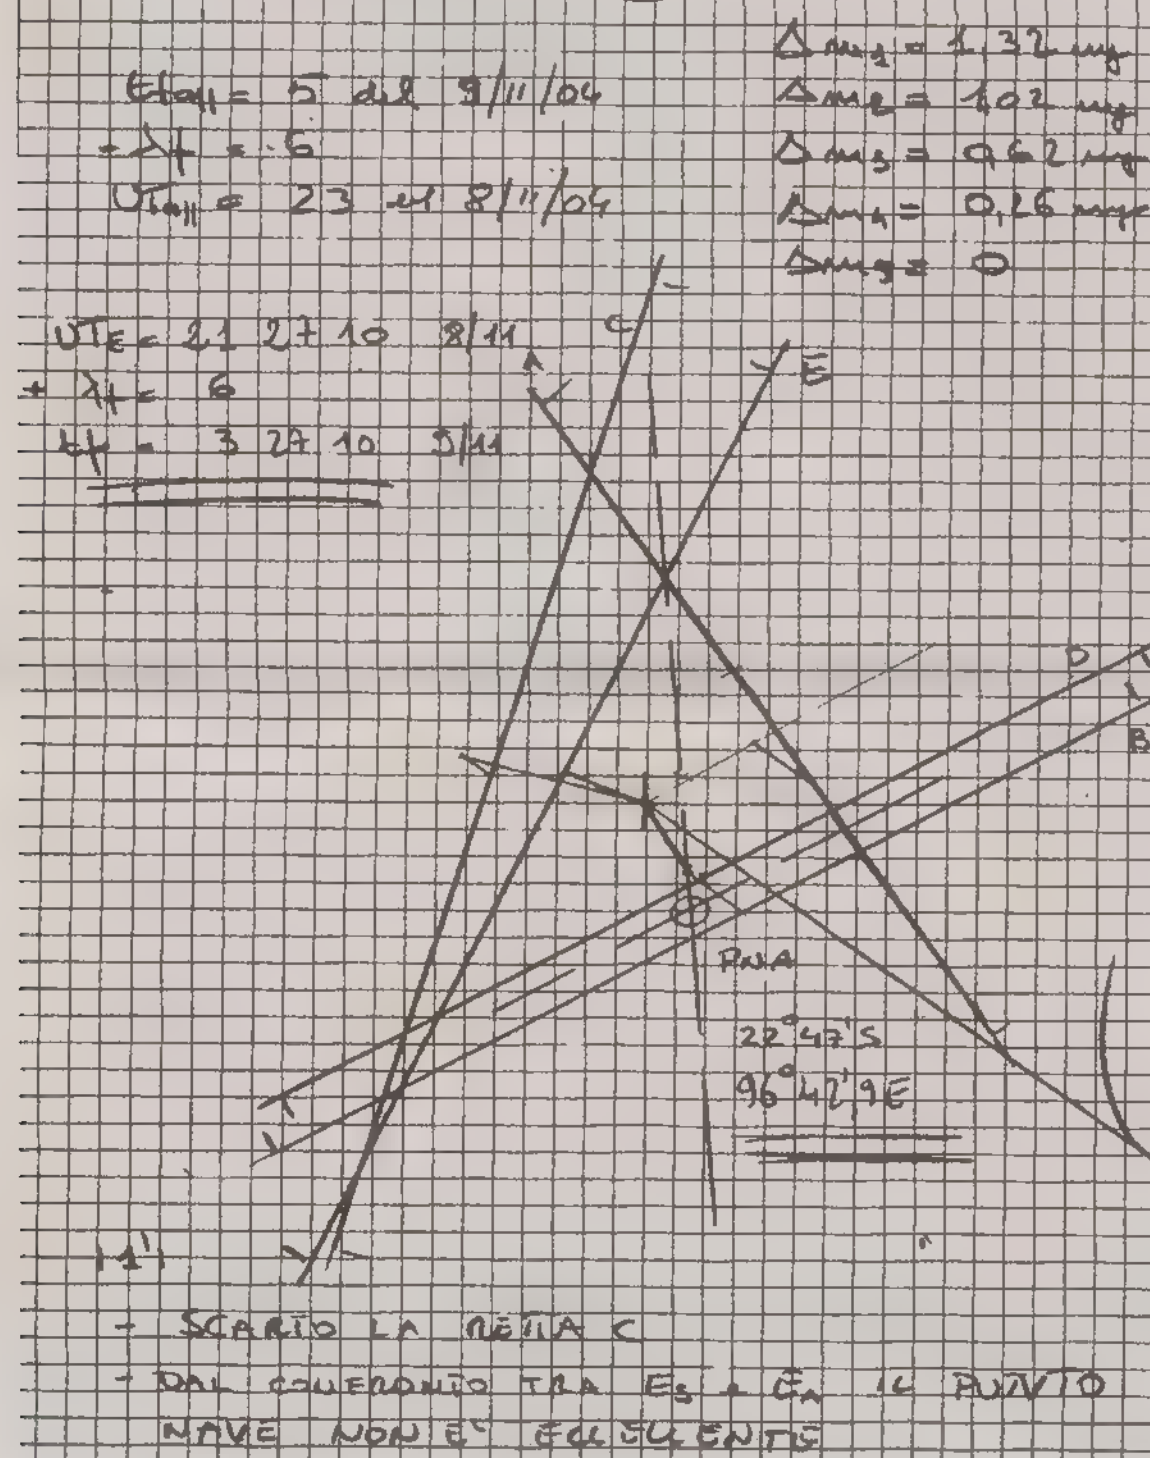 Δm₁ = 1,32 mg
Δm₂ = 1,02 mg
Δm₃ = 0,62 mg
Δm₄ = 0,26 mg
Δm₅ = 0
= 5 del 9/11/04
- λf = 6
= 23 del 8/11/04
UTE = 21 27 10 8/11
+ λf = 6
tf = 3 27 10 9/11
C
E
D
B
PNA
22° 47' S
96° 42',9 E
1'
- SCARTO LA RETTA C
- DAL CONFRONTO TRA IL PUNTO
NAVE NON E' ECCELLENTE